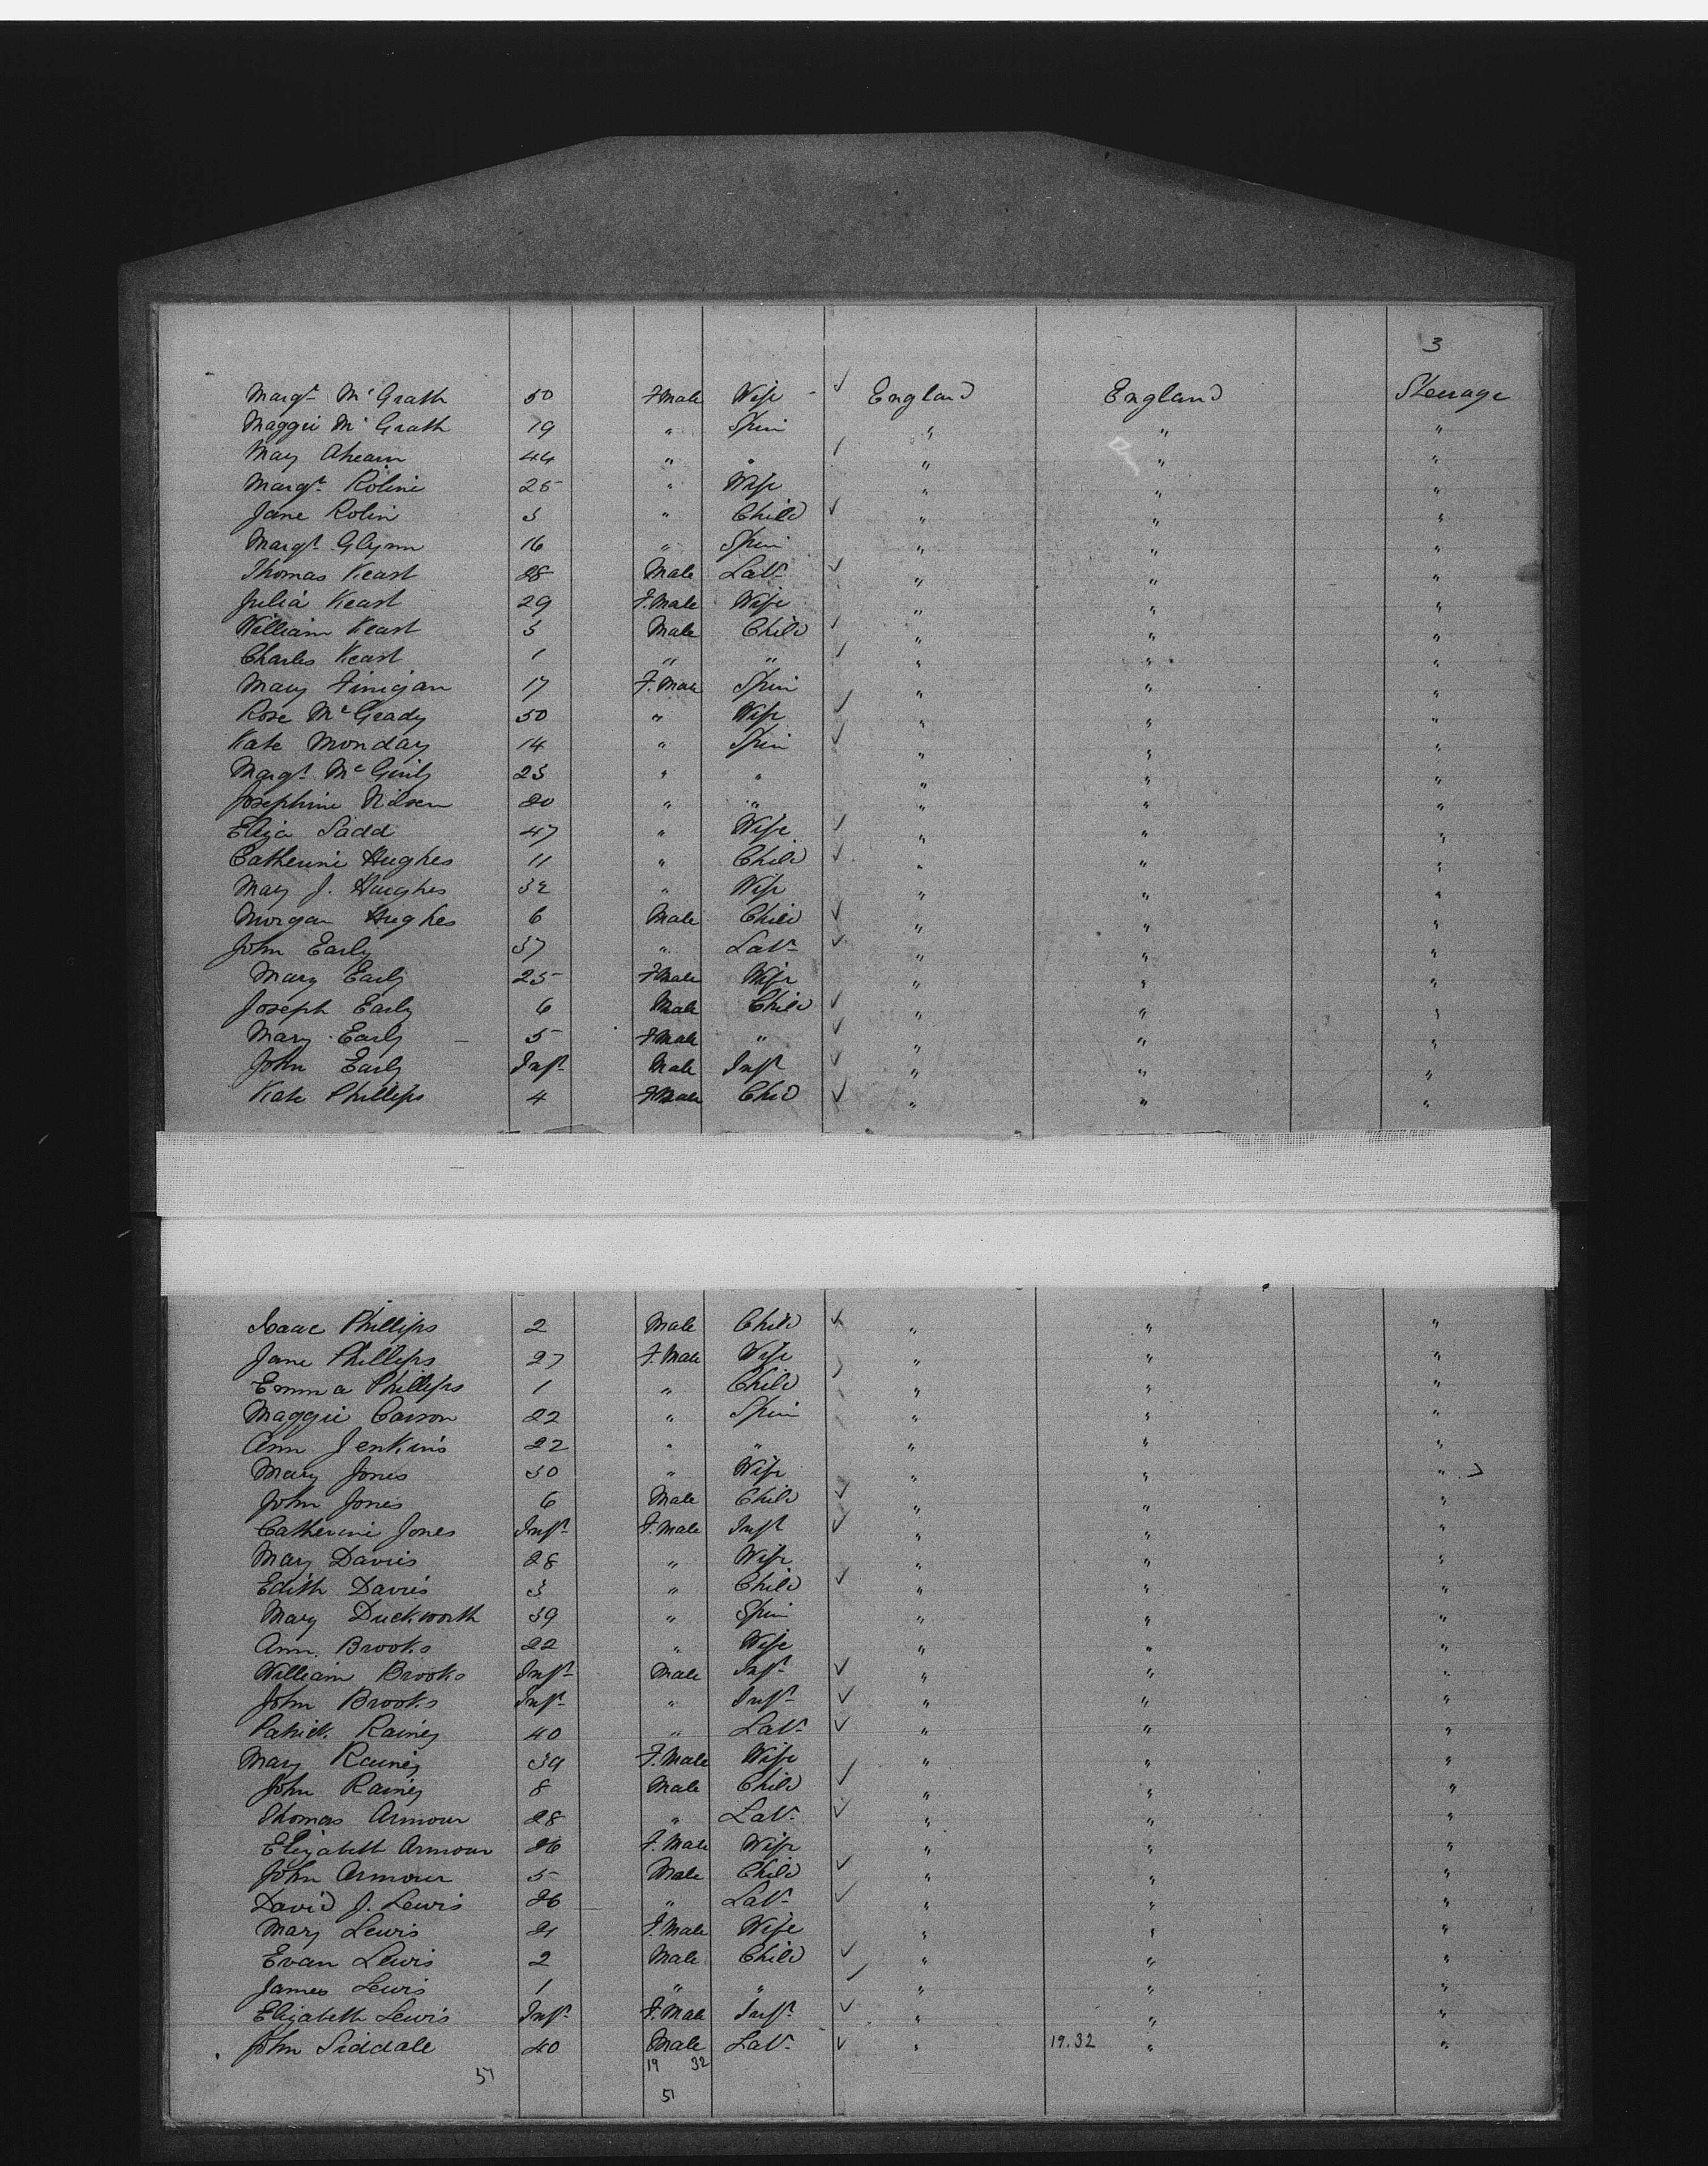 3
Margt McGrath 50 F.Male Wife England England Steerage
Maggie McGrath 19 " Spin " " "
May Ahearn 44 " " " " "
Margt Roline 25 " Wife " " "
Jane Rolin 3 " Child " " "
Margt Glynn 16 " Spin " " "
Thomas Keast 28 Male Labr " " "
Julia Keast 29 F.Male Wife " " "
William Keast 3 Male Child " " "
Charles Keast 1 " " " " "
Mary Finigan 17 F.Male Spin " " "
Rose McGrady 50 " Wife " " "
Kate Monday 14 " Spin " " "
Margt 23 " " " " "
Josephine Nilsen 20 " " " " "
Eliza Sadd 47 " Wife " " "
Catherine Hughes 11 " Child " " "
May J. Hughes 32 " Wife " " "
Morgan Hughes 6 Male Child " " "
John Early 37 " Labr " " "
Mary Early 25 F.Male Wife " " "
Joseph Early 6 Male Child " " "
Mary Early 5 F.Male " " " "
John Early Inft Male Inft " " "
Kate Phillips 4 F.Male Child " " "
Isaac Phillips 2 Male Child " " "
Jane Phillips 27 F.Male Wife " " "
Emma Phillips 1 " Child " " "
Maggie Carson 22 " Spin " " "
Ann Jenkins 22 " " " " "
Mary Jones 30 " Wife " " "
John Jones 6 Male Child " " "
Catherine Jones Inft F.Male Inft " " "
Mary Davies 28 " Wife " " "
Edith Davies 3 " Child " " "
Mary Duckworth 39 " Spin " " "
Ann. Brooks 22 " Wife " " "
William Brooks Inft Male Inft " " "
John Brooks Inft " Inft " " "
Patrick Rainey 40 " Labr " " "
Mary Rainey 39 F.Male Wife " " "
John Rainey 8 Male Child " " "
Thomas Armour 28 " Labr " " "
Elizabeth Armour 26 F.Male Wife " " "
John Armour 5 Male Child " " "
David J. Lewis 26 " Labr " " "
Mary Lewis 21 F.Male Wife " " "
Evan Lewis 2 Male Child " " "
James Lewis 1 " " " " "
Elizabeth Lewis Inft F.Male Inft " " "
John Siddale 40 Male Labr " 19.32 " "
51 19 32
51